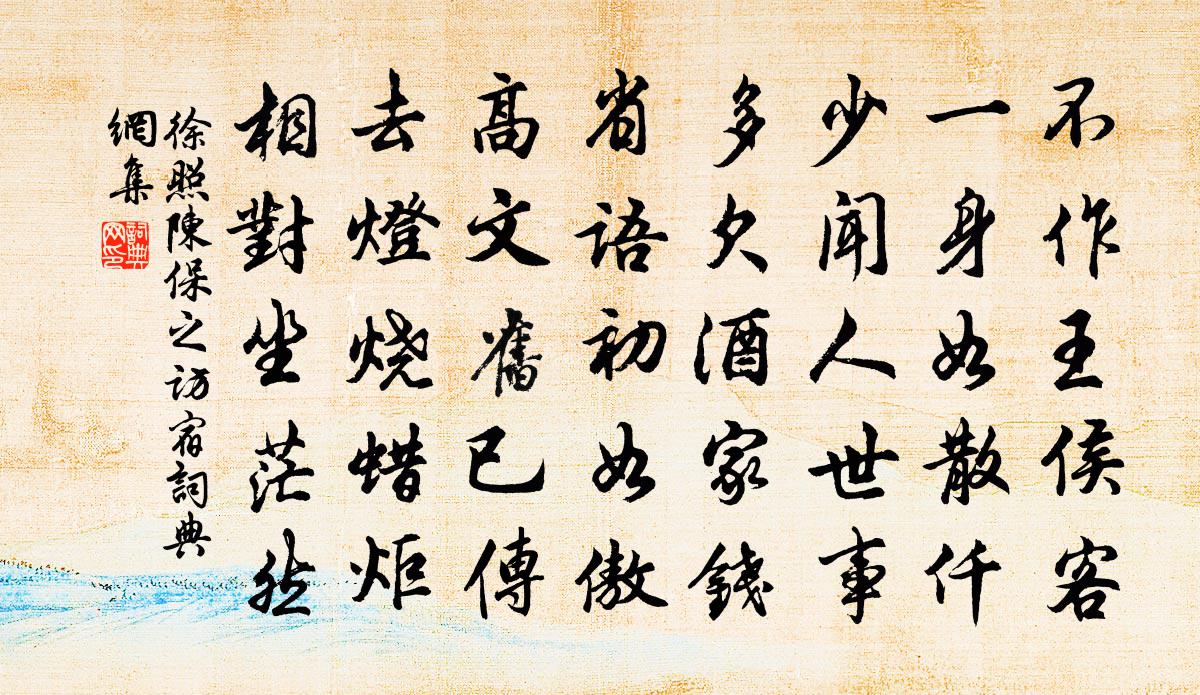 不作王侯客
一身如散仟
少聞人世事
多欠酒家錢
省語初如傲
高文舊已傳
去燈燒蜡炬
相對坐茫然
徐照陳保之訪宿詞典
網集
詞典
网印